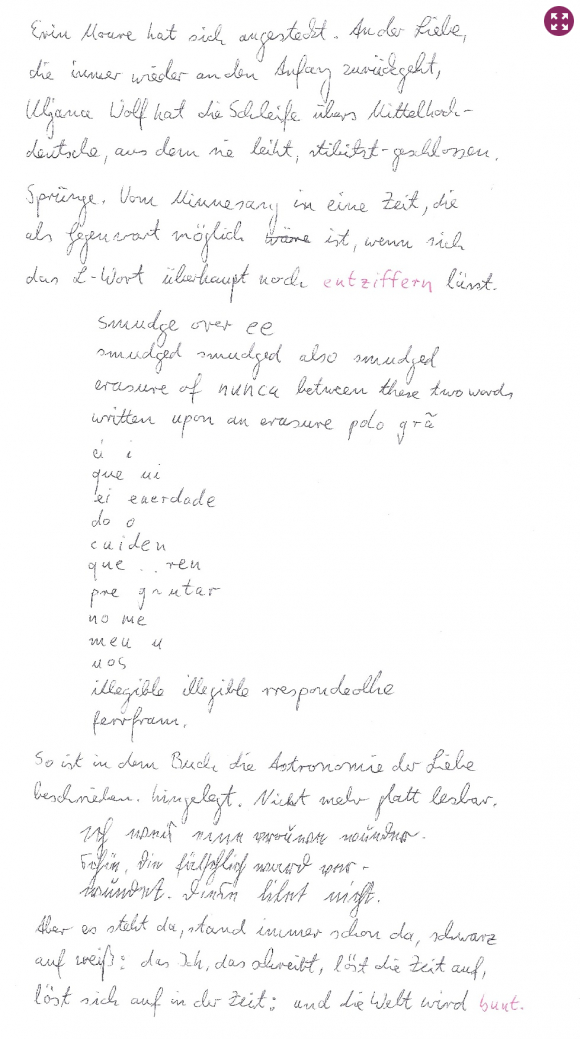 Erín Moure hat sich angesteckt. An der Liebe,
die immer wieder an den Anfang zurückgeht,
Uljana Wolf hat die Schleife übers Mittelhoch-
deutsche, aus dem sie leiht, stibitzt-geschlossen.
Sprünge. Vom Minnesang in eine Zeit, die
als Gegenwart möglich wäre ist, wenn sich
das L-Wort überhaupt noch entziffern lässt.
smudge over ee
smudged smudged also smudged
erasure of nunca between these two words
written upon an erasure polo grã
ei i
que ui
ei enerdade
do o
cuiden
que . . ren
pre gntar
no me
meu u
uos
illegible illegible rrespondeolhe
ferrfram.
So ist in dem Buch die Astronomie der Liebe
beschrieben. hingelegt. Nicht mehr glatt lesbar.
Ich
die fälschlich
nicht.
Aber es steht da, stand immer schon da, schwarz
auf weiß: das Ich, das schreibt, löst die Zeit auf,
löst sich auf in der Zeit: und die Welt wird bunt.